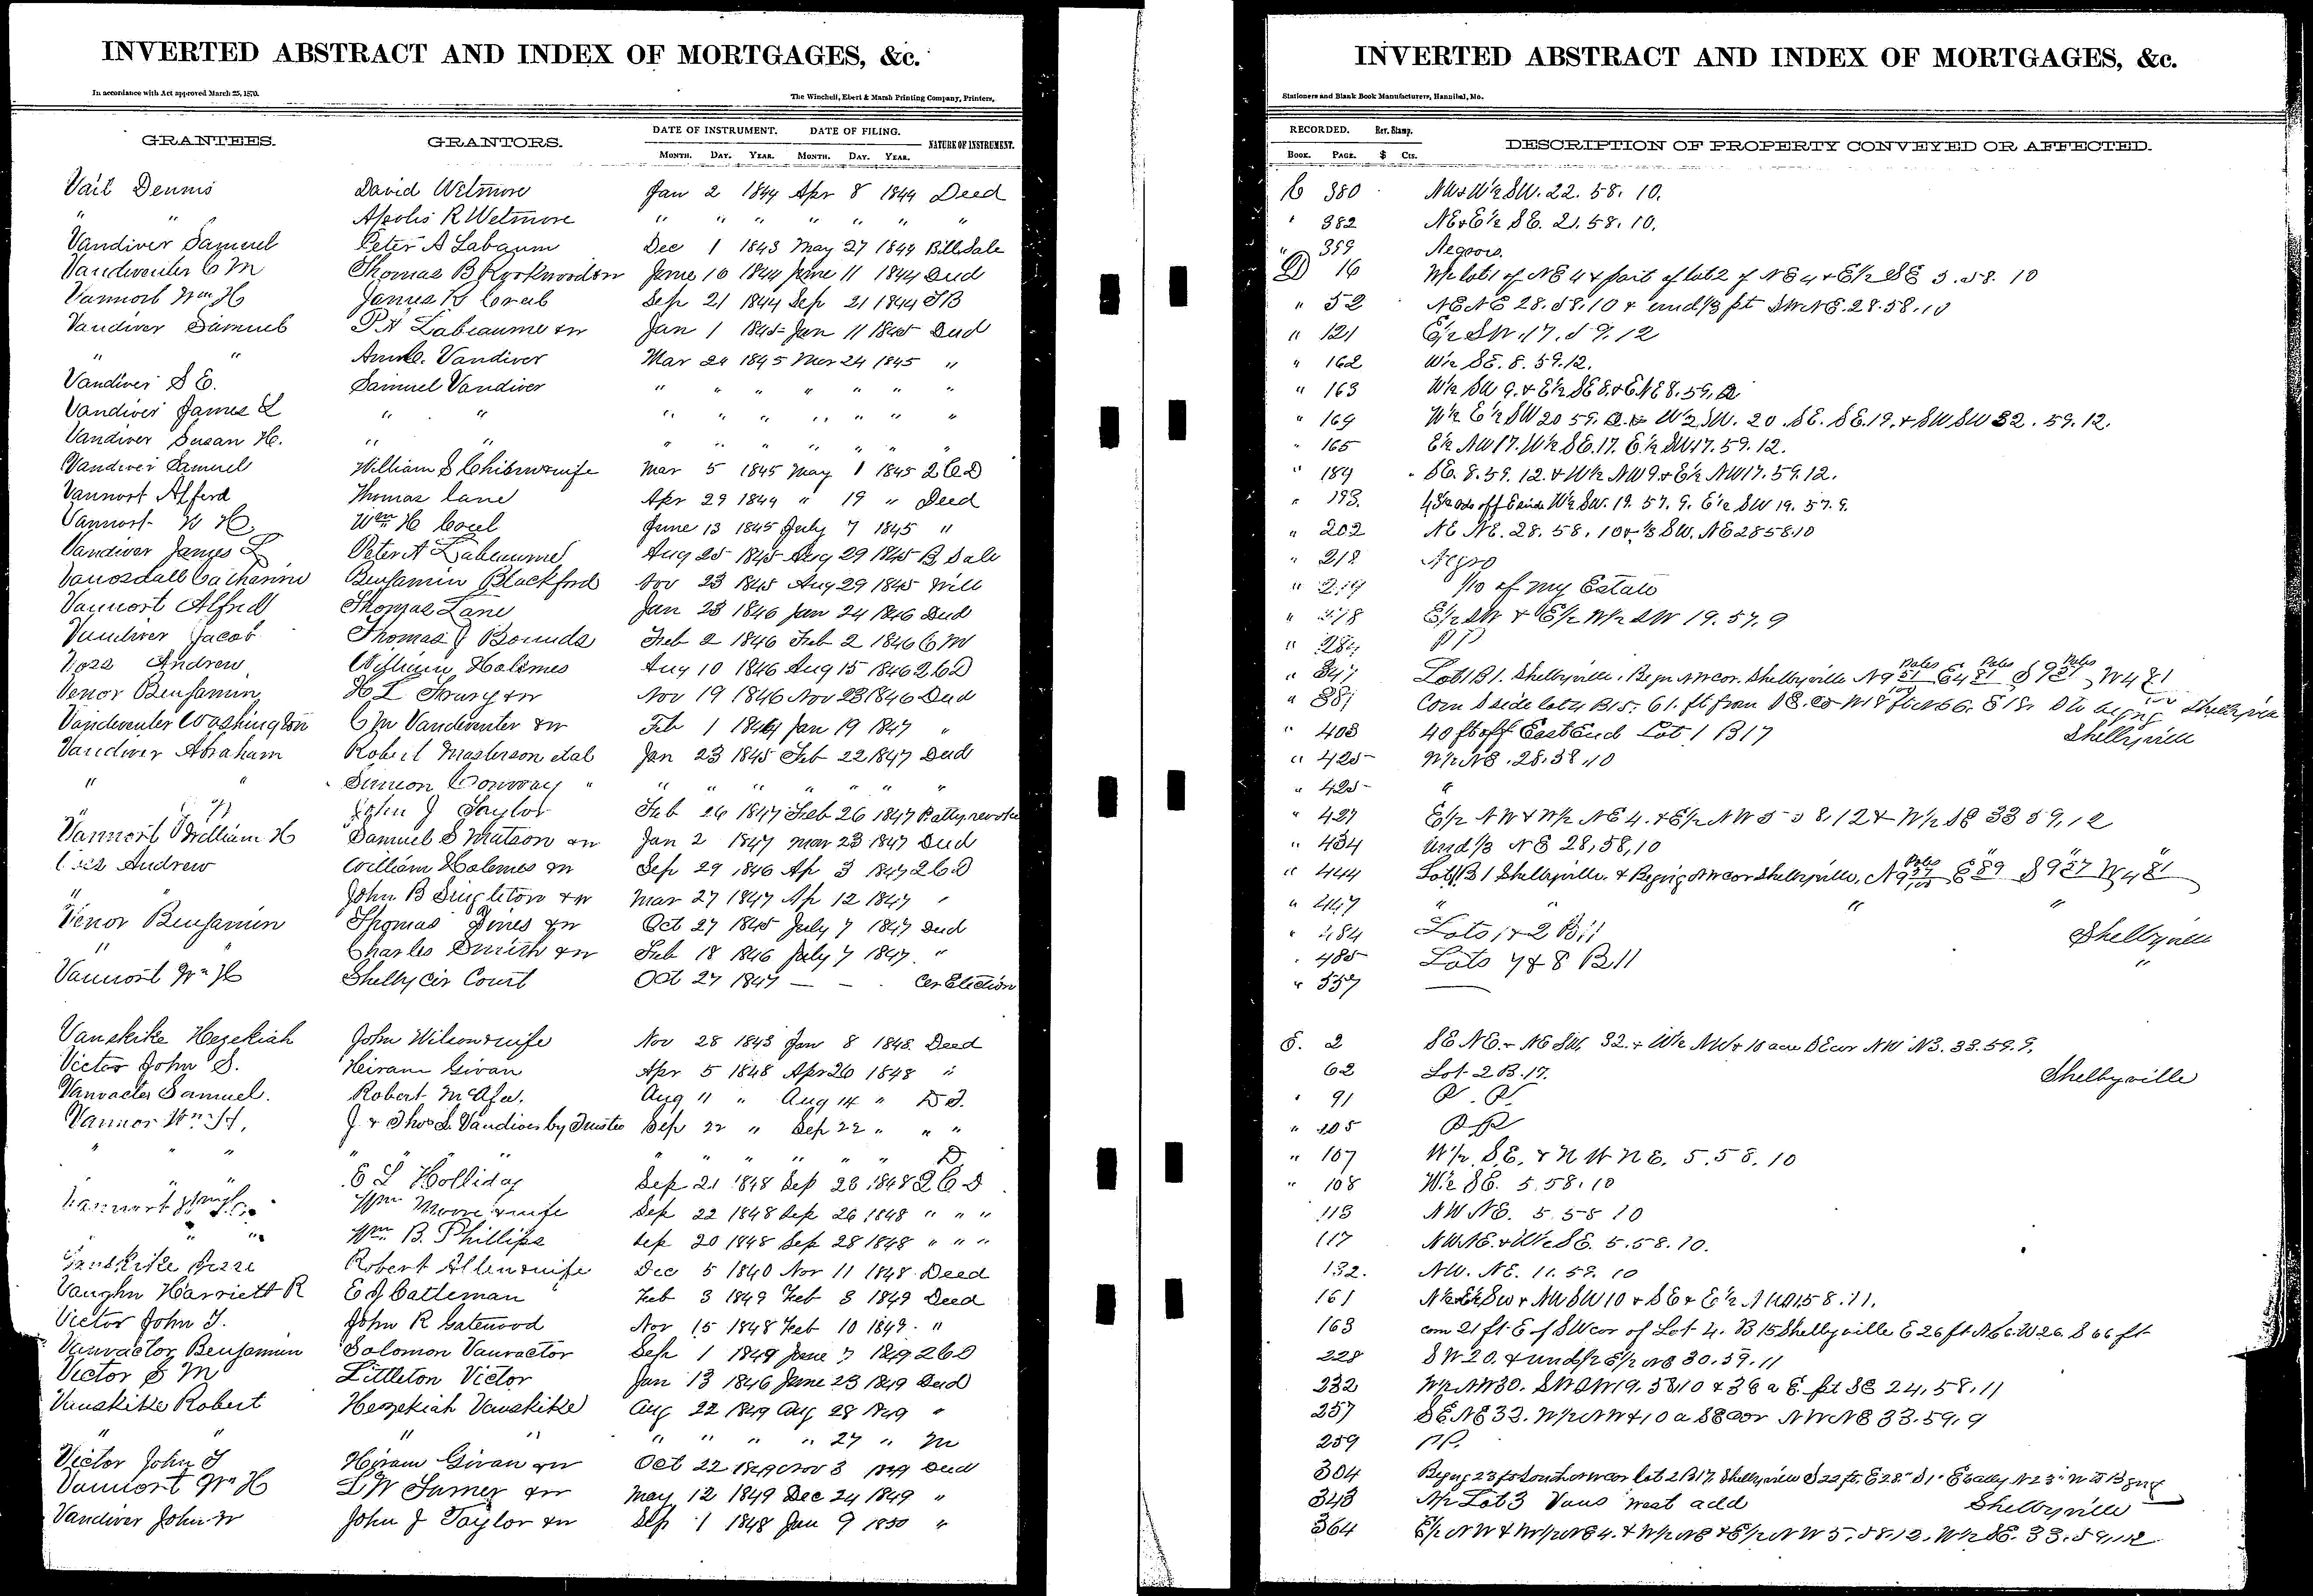 INVERTED ABSTRACT AND INDEX OF MORTGAGES, &c.
In accordance with Act approved March 25, 1870.
The Winchell, Ebert & Marsh Printing Company, Printers,
GRANTEES. GRANTORS. DATE OF INSTRUMENT. DATE OF FILING. NATURE OF INSTRUMENT.
MONTH. DAY. YEAR. MONTH. DAY. YEAR.
Vail Dennis David Wetmore Jan 2 1844 Apr 8 1844 Deed
" " Apolis R Wetmore " " " " " " "
Vandiver Samuel Peter A Labaum Dec 1 1843 May 27 1844 Bill Sale
Vandiventer C M Thomas B June 10 1844 June 11 1844 Deed
Vannort Wm H James Sep 21 1844 Sep 21 1844 TB
Vandiver Samuel P A Labeaume & w Jan 1 1845 Jan 11 1845 Deed
" " Ann C. Vandiver Mar 24 1845 Mar 24 1845 "
Vandiver S E. Samuel Vandiver " " " " " " "
Vandiver James L " " " " " " " " "
Vandiver Susan H. " " " " " " " " "
Vandiver Samuel William S Chism & wife Mar 5 1845 May 1 1845 2 C D
Vannort Alferd Thomas Lane Apr 29 1844 " 19 " Deed
Vannort W H. Wm H June 13 1845 July 7 1845 "
Vandiver James L Peter A Labeaume Aug 25 1845 Aug 29 1845 B Sale
Vanosdall Catharine Benjamin Blackford Nov 23 1845 Aug 29 1845 Will
Vannort Alfred Thomas Lane Jan 23 1846 Jan 24 1846 Deed
Vandiver Jacob Thomas J Bounds Feb 2 1846 Feb 2 1846 C M
Voss Andrew William Holimes Aug 10 1846 Aug 15 1846 2 C D
Venor Benjamin H L & w Nov 19 1846 Nov 23 1846 Deed
Vandeventer Washington C M Vandeventer & w Feb 1 Jan 19 1847 "
Vandiver Abraham Robert Masterson et al Jan 23 1845 Feb 22 1847 Deed
" " Simeon Conway " " " " " " " "
" " John J Taylor Feb 26 1847 Feb 26 1847
Vannort William H Samuel S Matson & w Jan 2 1847 Mar 23 1847 Deed
Andrew William Holemes & w Sep 29 1846 Ap 3 1847 2 C D
" John B Singleton & w Mar 27 1847 Ap 12 1847 "
Venor Benjamin Thomas & w Oct 27 1845 July 7 1847 Deed
" Charles Smith & w Feb 18 1846 July 7 1847 "
Vannort Wm H Shelby Cir Court Oct 27 1847 — — Cer Election
Vanskike Hezekiah John Wilson & wife Nov 28 1843 Jan 8 1848 Deed
Victor John S. Hiram Givan Apr 5 1848 Apr 26 1848 "
Vanvacter Samuel. Robert McAfee. Aug 11 " Aug 14 " D T.
Vannor Wm H. J. & Thos S. Vandiver by Trustee Sep 22 " Sep 22 " " "
" " " " " " " " " " " " D
" " E L Holliday Sep 21 1848 Sep 23 1848 2 C D
Vannort Wm Moore & wife Sep 22 1848 Sep 26 1848 " " "
" " Wm B. Phillips Sep 20 1848 Sep 28 1848 " " "
Vanskike Jesse Robert Allen & wife Dec 5 1840 Nov 11 1848 Deed
Vaughn Harriett R E J Batteman Feb 3 1849 Feb 3 1849 Deed
Victor John T. John R Gatewood Nov 15 1848 Feb 10 1849 "
Vanvactor Benjamin Solomon Vanvactor Sep 1 1849 June 7 1849 2 C D
Victor S M Littleton Victor Jan 13 1846 June 23 1849 Deed
Vanskike Robert Hezekiah Vanskike Aug 22 1849 Aug 28 1849 "
" " " " " " " " 27 " M
Victor John T Hiram Givan & w Oct 22 1849 Nov 3 1849 Deed
Vannort Wm H May 12 1849 Dec 24 1849 "
Vandiver John W John J Taylor & w Sep 1 1848 Jan 9 1850 "
INVERTED ABSTRACT AND INDEX OF MORTGAGES, &c.
Stationers and Blank Book Manufacturers, Hannibal, Mo.
RECORDED. Rev. Stamp. DESCRIPTION OF PROPERTY CONVEYED OR AFFECTED.
BOOK. PAGE. $ Cts.
C 380 NW & W½ SW. 22. 58. 10.
" 382 NE & E½ SE. 21. 58. 10.
" 389 Negroes.
D 16 W½ lot 1 of NE 4 & part of lot 2 of NE 4 & E½ SE 3. 58. 10
" 52 NE NE 28. 58. 10 & und ⅓ pt SW NE. 28. 58. 10
" 121 E½ SW. 17. 59. 12
" 162 W½ SE. 8. 59. 12.
" 163 W½ SW 9. & E½ SE 8 & E NE 8. 59.
" 164 W½ E½ SW 20 59. W½ SW. 20. SE. SE. 19. & SW SW 32. 59. 12.
" 165 E½ NW 17. W½ SE. 17. E½ SW 17. 59. 12.
" 184 SE. 8. 59. 12. & W½ NW 9. & E½ NW 17. 59. 12.
" 193. off E side W½ SW. 19. 57. 9. E½ SW 19. 57. 9.
" 202 NE NE. 28. 58. 10 & ⅓ SW. NE 28 58 10
" 218 Negro
" 219 1/10 of my Estate
" 278 E½ SW & E½ W½ SW 19. 57. 9
" 284 P P
" 347 Lot 1 B 1. Shelbyville.
" 381
" 403 40 ft off East End Lot 1 B 17 Shelbyville
" 425 W½ NE. 28. 58. 10
" 425 "
" 427 E½ NW & W½ NE 4. & E½ NW 5 58. 12 & W½ SE 33 59. 12
" 434 Und ⅓ NE 28, 58, 10
" 444 Lot 1 B 1 Shelbyville.
" 447 " " "
" 484 Lots 1 & 2 B 11 Shelbyville
" 485 Lots 7 & 8 B 11 "
" 557 —
E. 2 SE NE. - NE SW. 32. & W½ NW & 10 acre SE cor NW NE. 33. 59. 9.
62 Lot 2 B. 17. Shelbyville
" 91 P. P.
" 105 P P
" 107 W½ SE. & NW NE. 5. 58. 10
" 108 W½ SE. 5. 58. 10
113 NW NE. 5. 58 10
117 NW NE. & W½ SE. 5. 58. 10.
132. NW. NE. 11. 59. 10
161
163 com 21 ft E of SW cor of Lot 4. B 15 Shelbyville E 26 ft N 66 W 26. S 66 ft
228 SW 20. & und ½ E½ NE 30. 59. 11
232 W½ NW 30. SW SW 19. 58. 10 & 36 a E. pt SE 24, 58, 11
257 SE NE 32. W½ NW & 10 a SE cor NW NE 33. 59. 9
259 P P.
304
343 N½ Lot 3 Vans West add Shelbyville
364 E½ NW & W½ NE 4. & W½ NE & E½ NW 5. 58. 12. W½ SE. 33. 59. 12